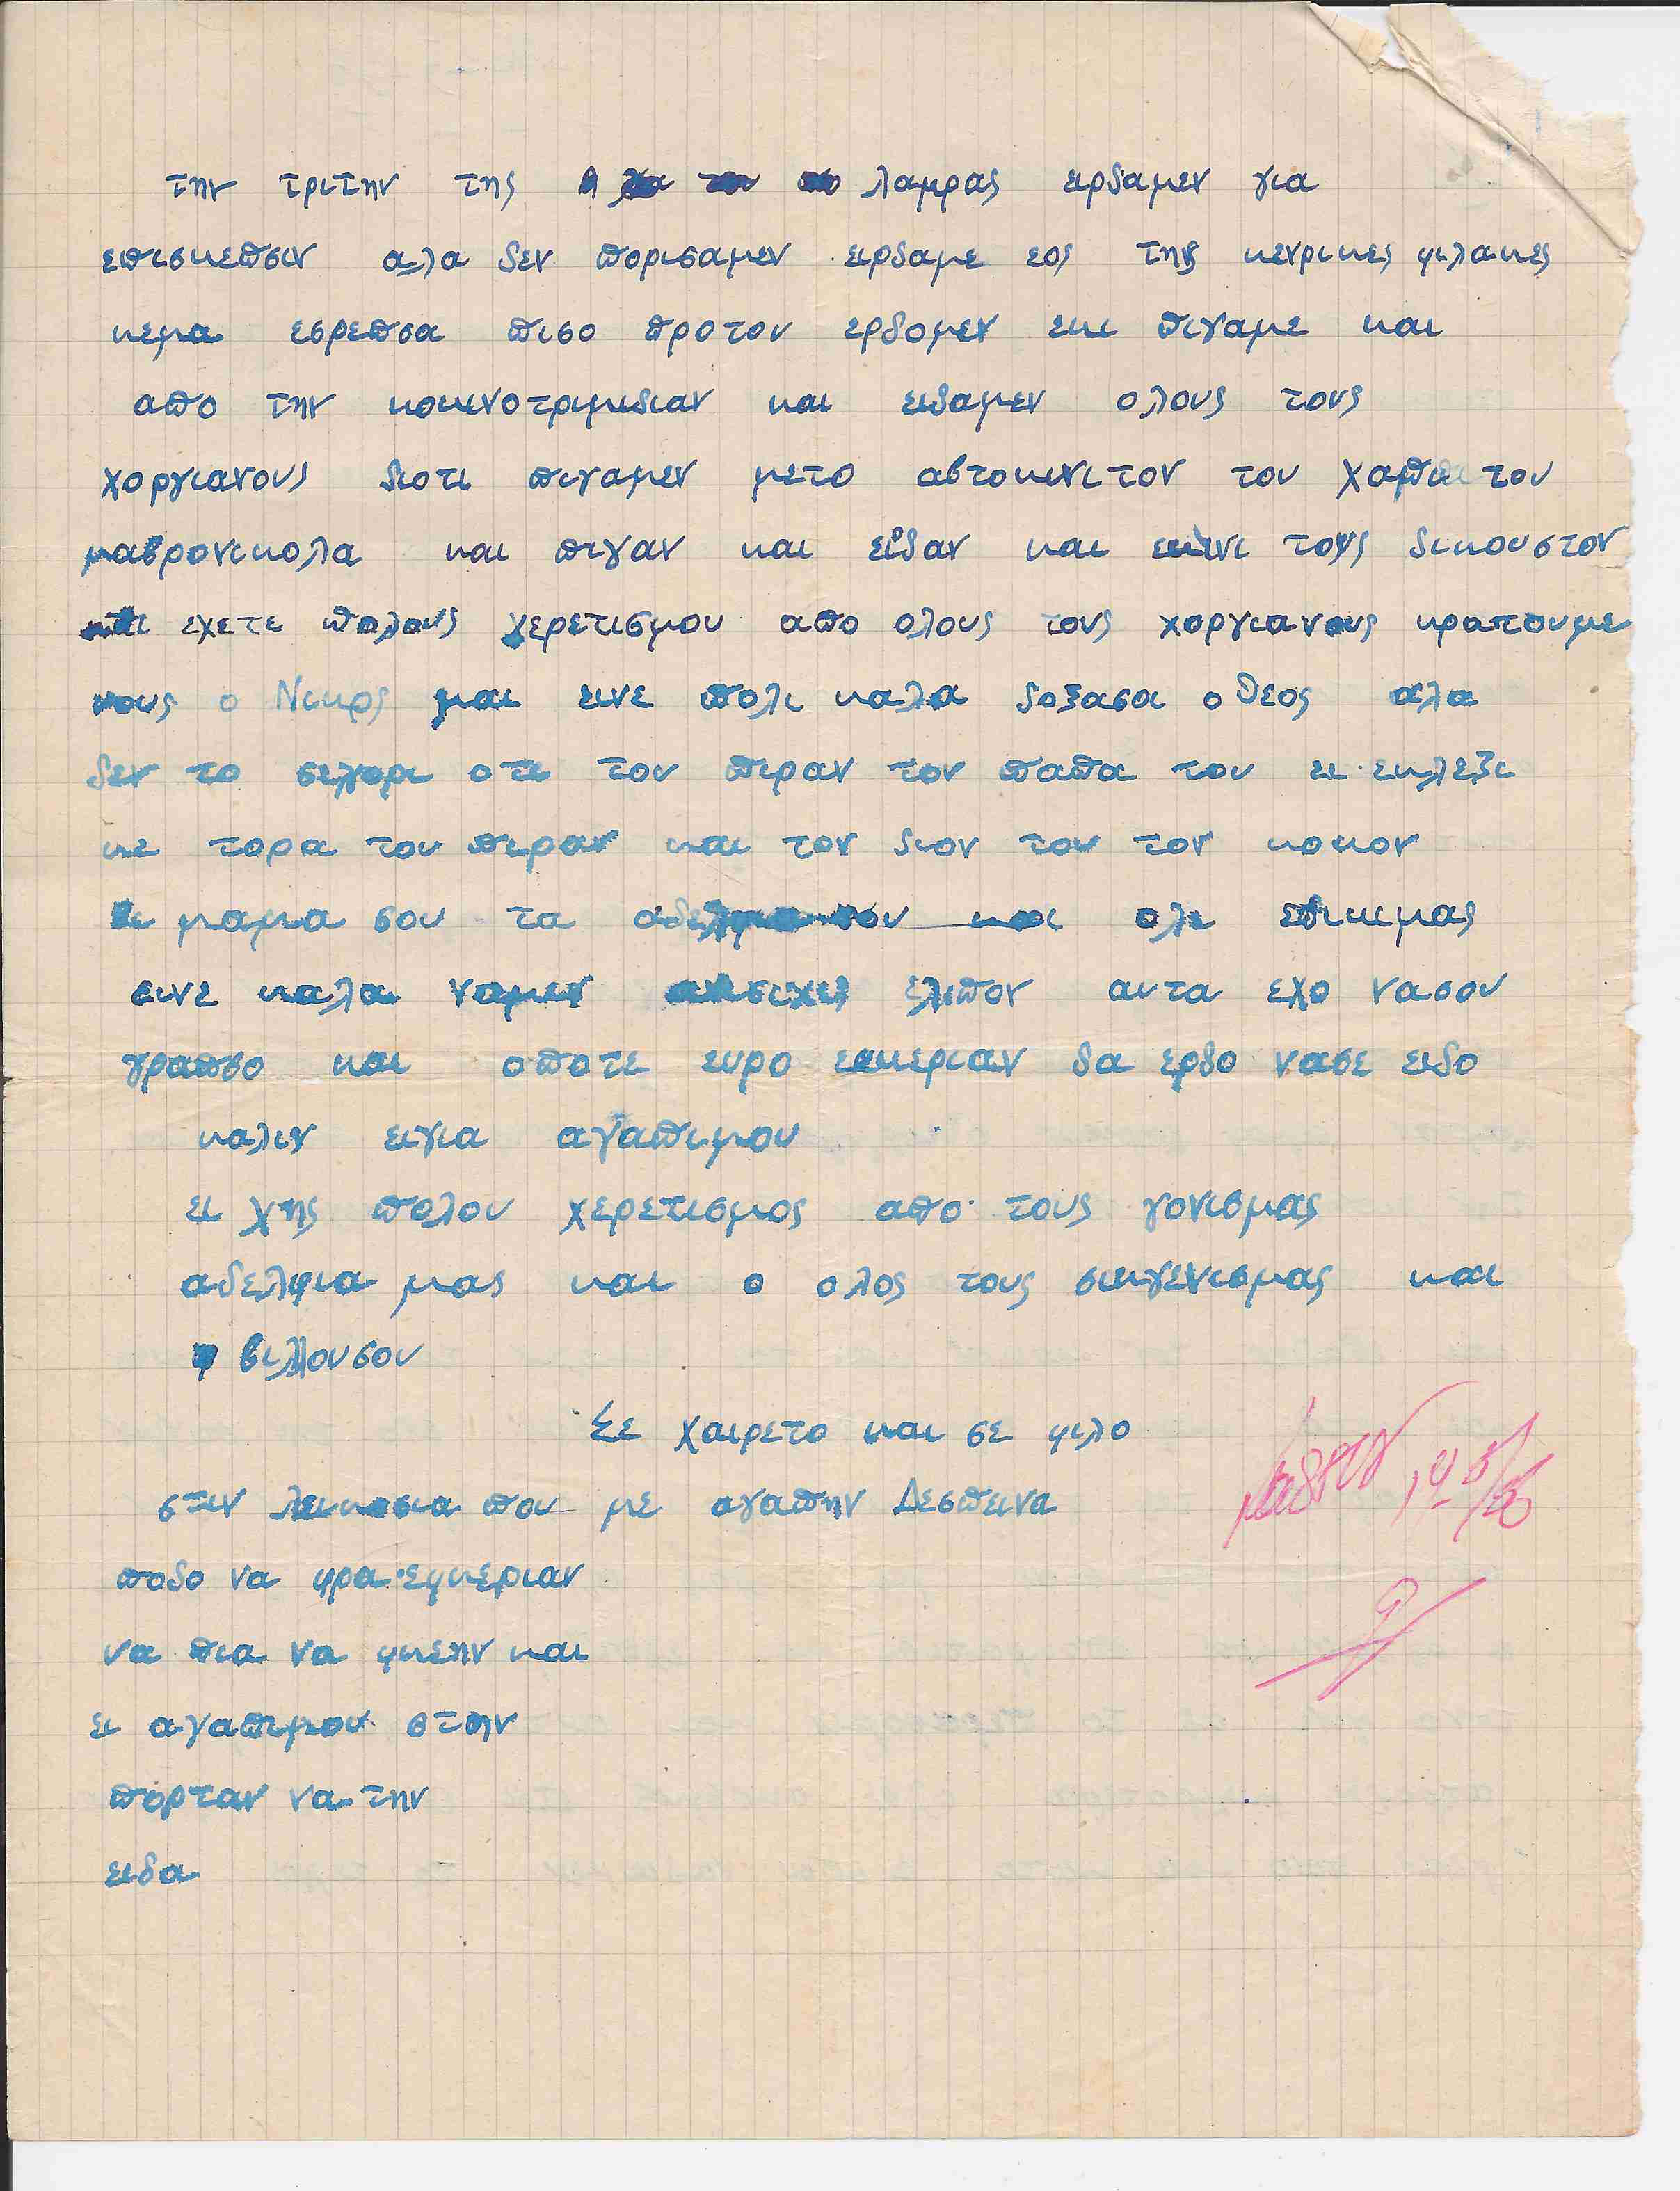 την τριτην της λαμρας ειρδαμεν για
επισκεπσιν αλα δεν πορισαμεν ειρδαμε εος της κενρικες φιλακες
κεμα εσρεπσα πισο προτον ερδομεν εκι πιγαμε και
απο την κοκινοτριμιδιαν και ειδαμεν ολους τους
χοργιανους διοτι πιγαμεν μετο αβτοκινιτον του χαμπι του
μαβρονικολα και πιγαν και ειδαν και εκινι τους δικουστον
εχετε πολους χερετισμου απο ολους τους χοργιανους κραπουμε
νους ο Νικος μας εινε πολι καλα δοξασι ο θεος αλα
δεν το οτι τον πιραν τον παπα του ει εκλεξι
κε τορα του πιραν και τον διον του τον κοκον
ει μαμα σου τα αδελφια σου και ολι εδικιμας
εινε καλα ναμεν ανισιχις ελιπον αυτα εχο νασου
γραπσο και οποτε ευρο εφκεριαν δα ερδο νασε ειδο
καλιν ειγια αγαπιμου
ει χης πολου χερετισμος απο τους γονισμας
αδελφια μας και ο ολος τους σινγενισμας και
βιλλουσου
Σε χαιρετο και σε φιλο
στιν λευκοσια που με αγαπην Δεσπεινα
ποδο να φρα εφκεριαν
να πια να φκεην και
ει αγαπιμου στην
πορταν να την
ειδα